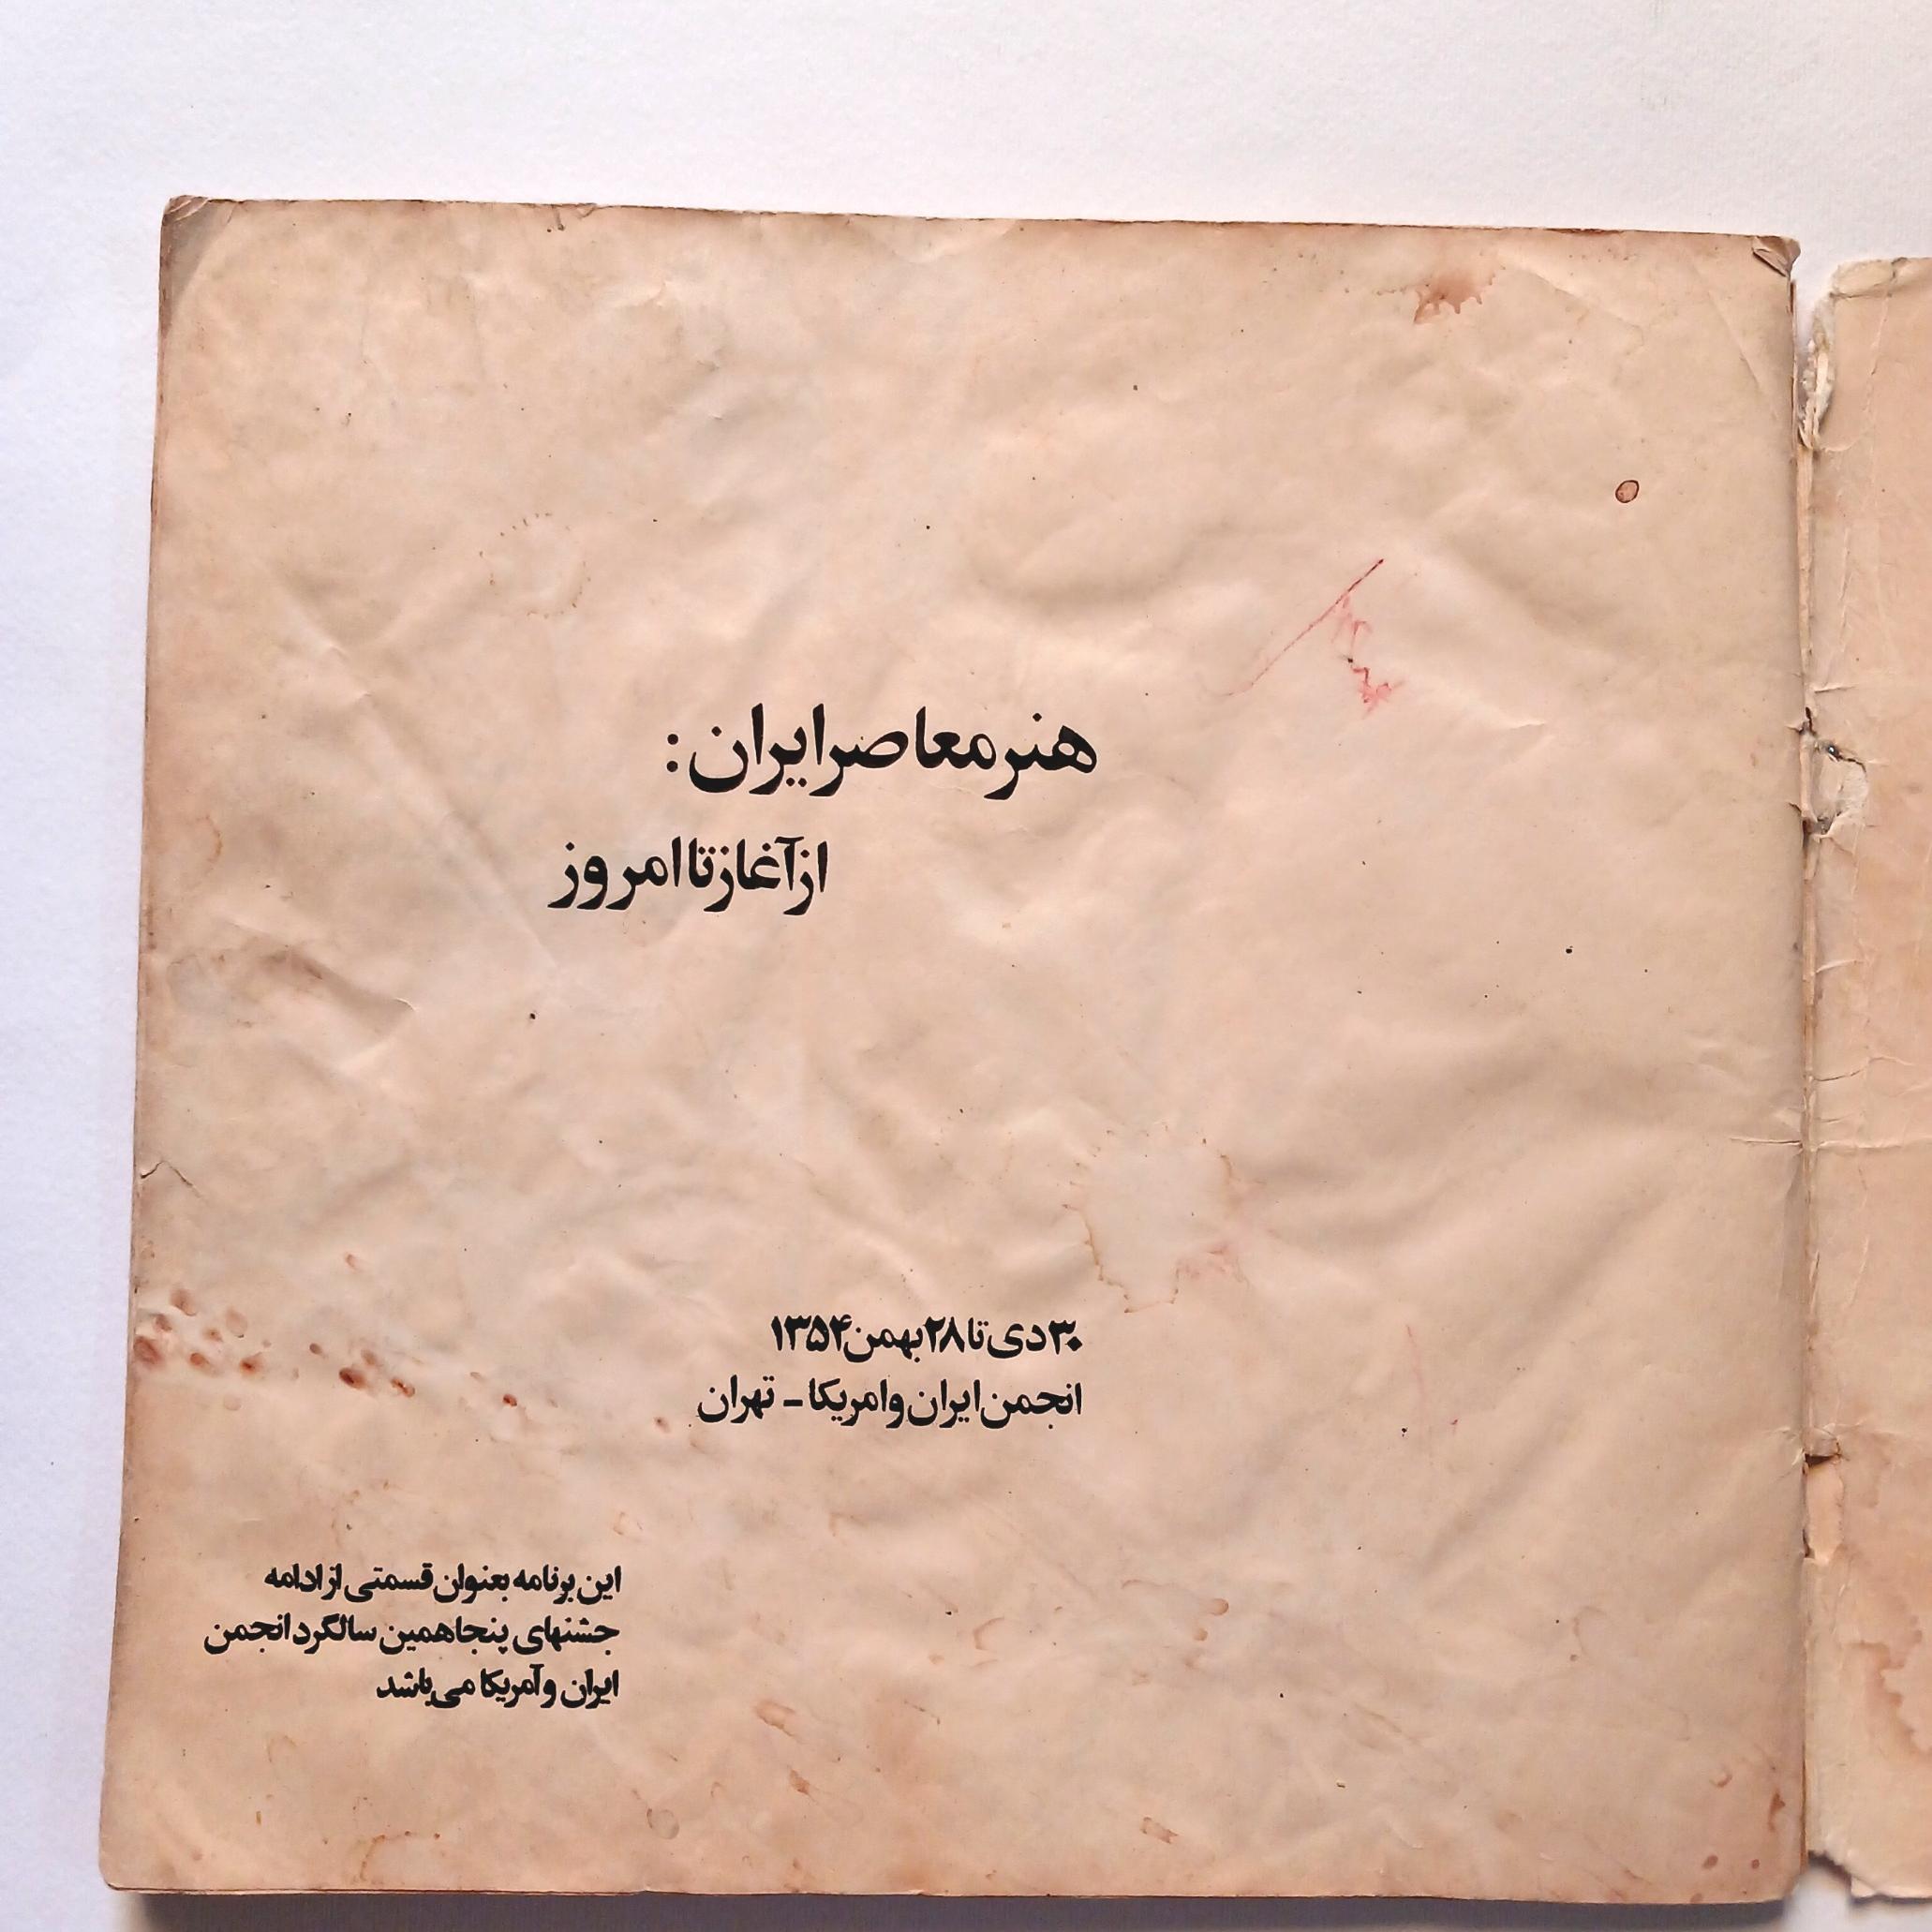 هنر معاصر ایران:
از آغاز تا امروز
۳۰ دی تا ۲۸ بهمن ۱۳۵۴
انجمن ایران و امریکا - تهران
این برنامه بعنوان قسمتی از ادامه
جشنهای پنجاهمین سالگرد انجمن
ایران و آمریکا می‌باشد